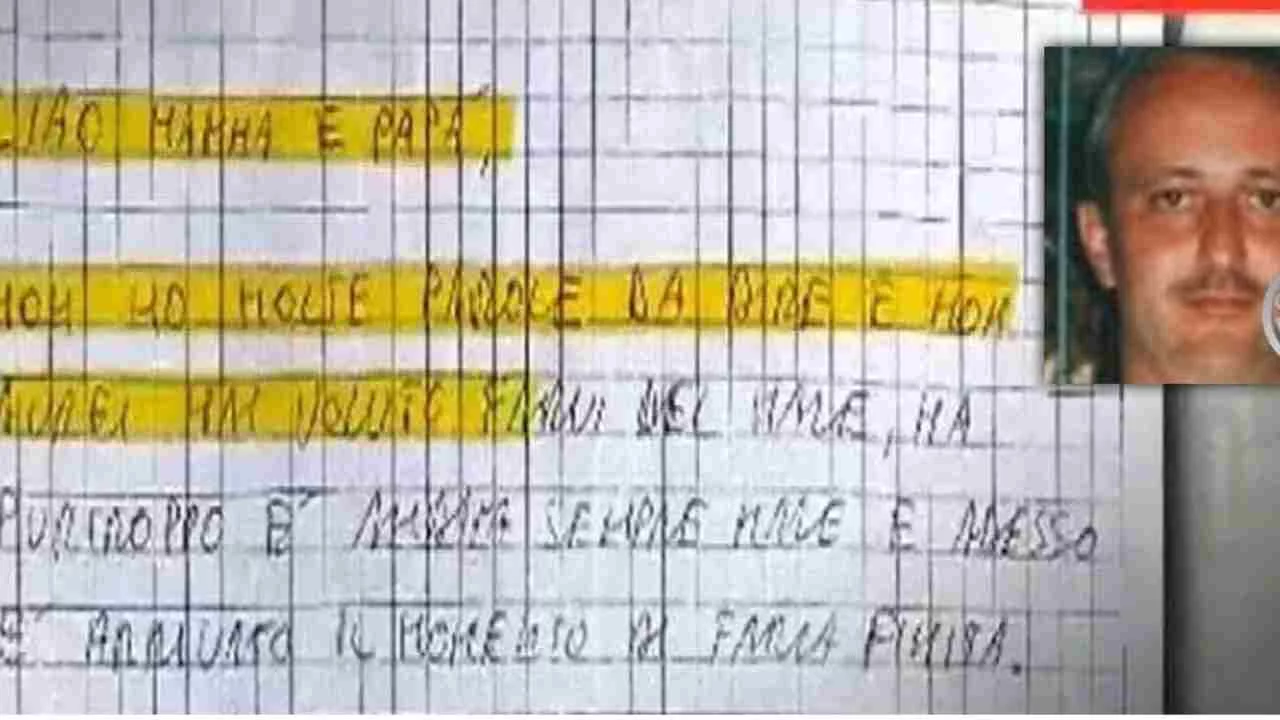 CIAO MAMMA E PAPÀ,
NON HO MOLTE PAROLE DA DIRE E NON
AUREI MAI VOLUTO FARUI DEL MALE, MA
PURTROPPO E' ANDATA SEMPRE MALE E ADESSO
E' ARRIVATO IL MOMENTO DI FARLA FINITA.